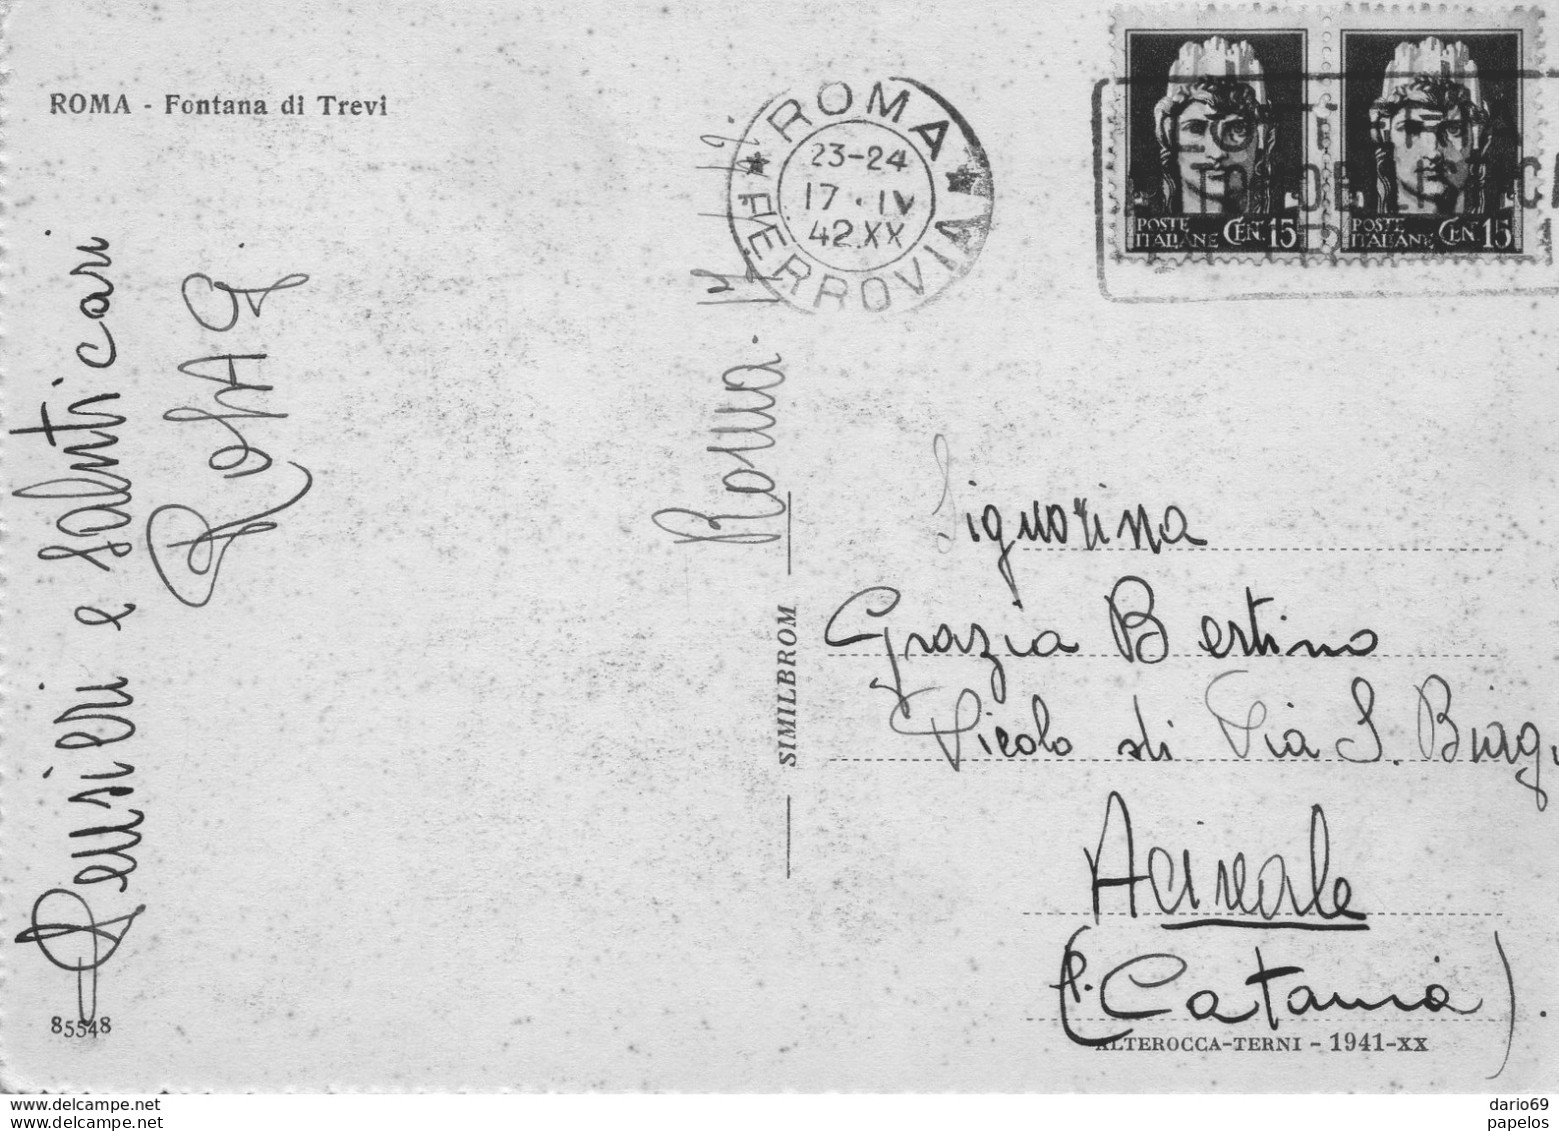 ROMA - Fontana di Trevi
★ ROMA ★
23-24
17 · IV
42 XX
FERROVIA
POSTE ITALIANE CEN. 15
POSTE ITALIANE CEN 15
Pensieri e saluti cari
Roma.
SIMILBROM
Signorina
Grazia Bertino
Vicolo di Via S. Biag
Acireale
(P. Catania).
85548
ALTEROCCA-TERNI - 1941-XX
delcampe.net
dario69
papelos